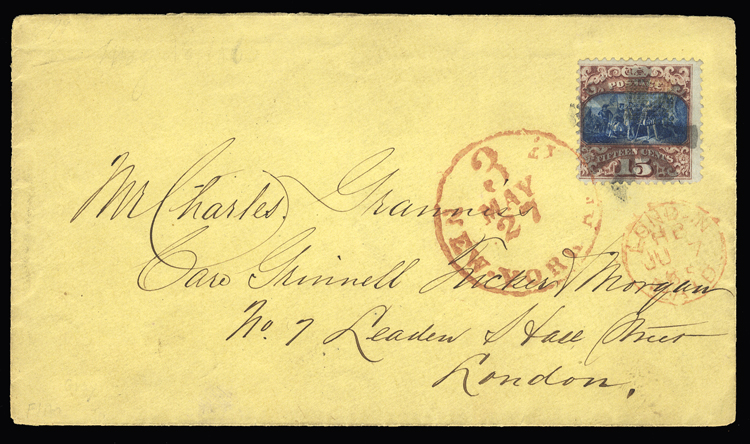 Mr Charles Granniss
Care Grinnell Tucker & Morgan
No. 7 Leaden S Hall Street
London.
3
MAY
27
NEW YORK
LONDON
PO
FIFTEEN CENTS
15